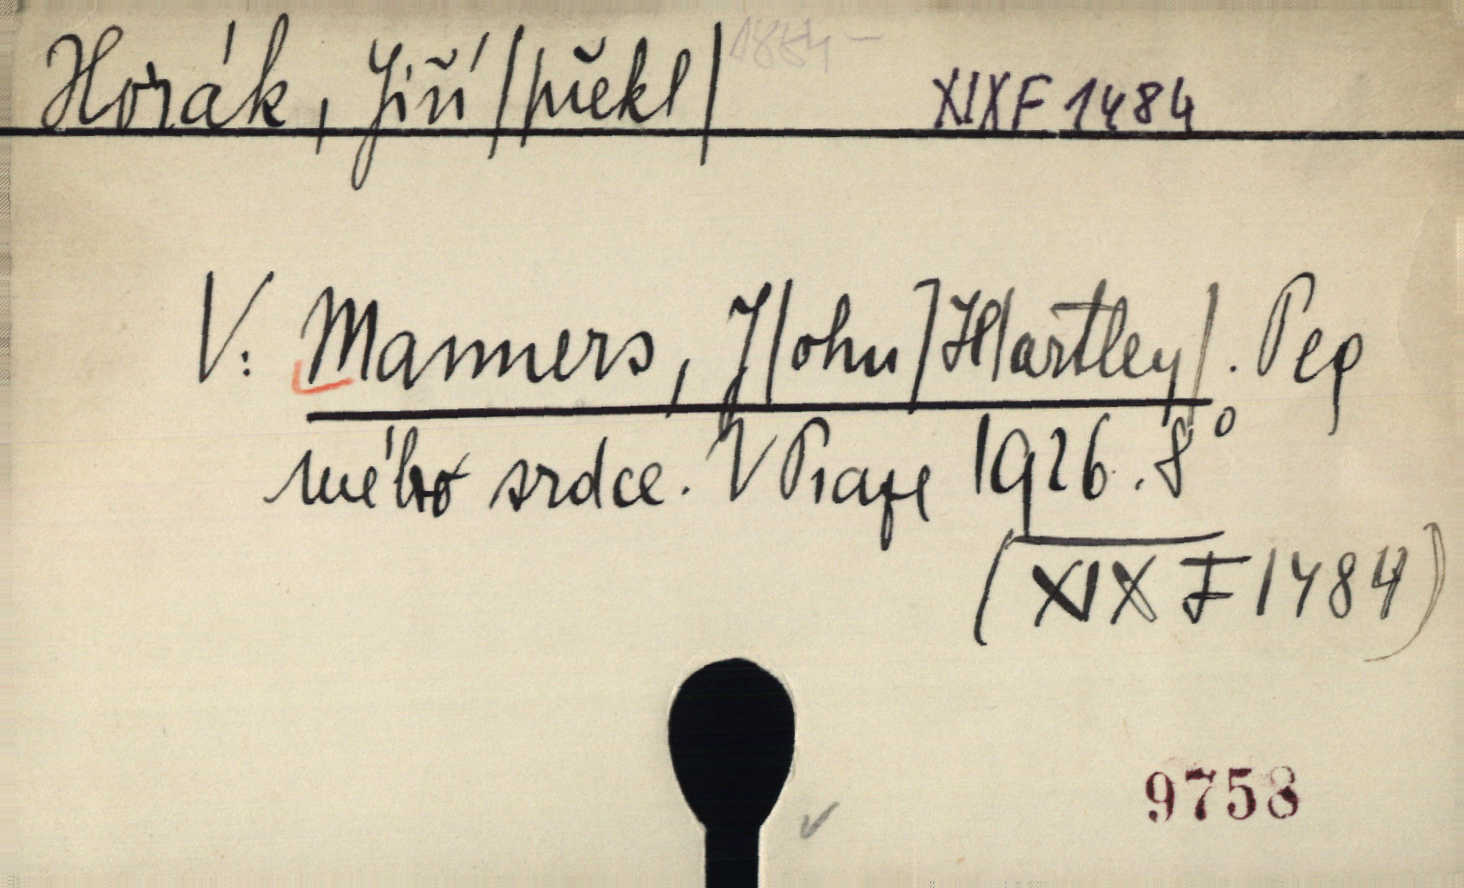 Horák, Jiří /překl/ 1884- XIX F 1484
V: Manners, J/ohn/ H/artley/. Peg
mého srdce. V Praze 1926. 8°
(XIX F 1484)
9758